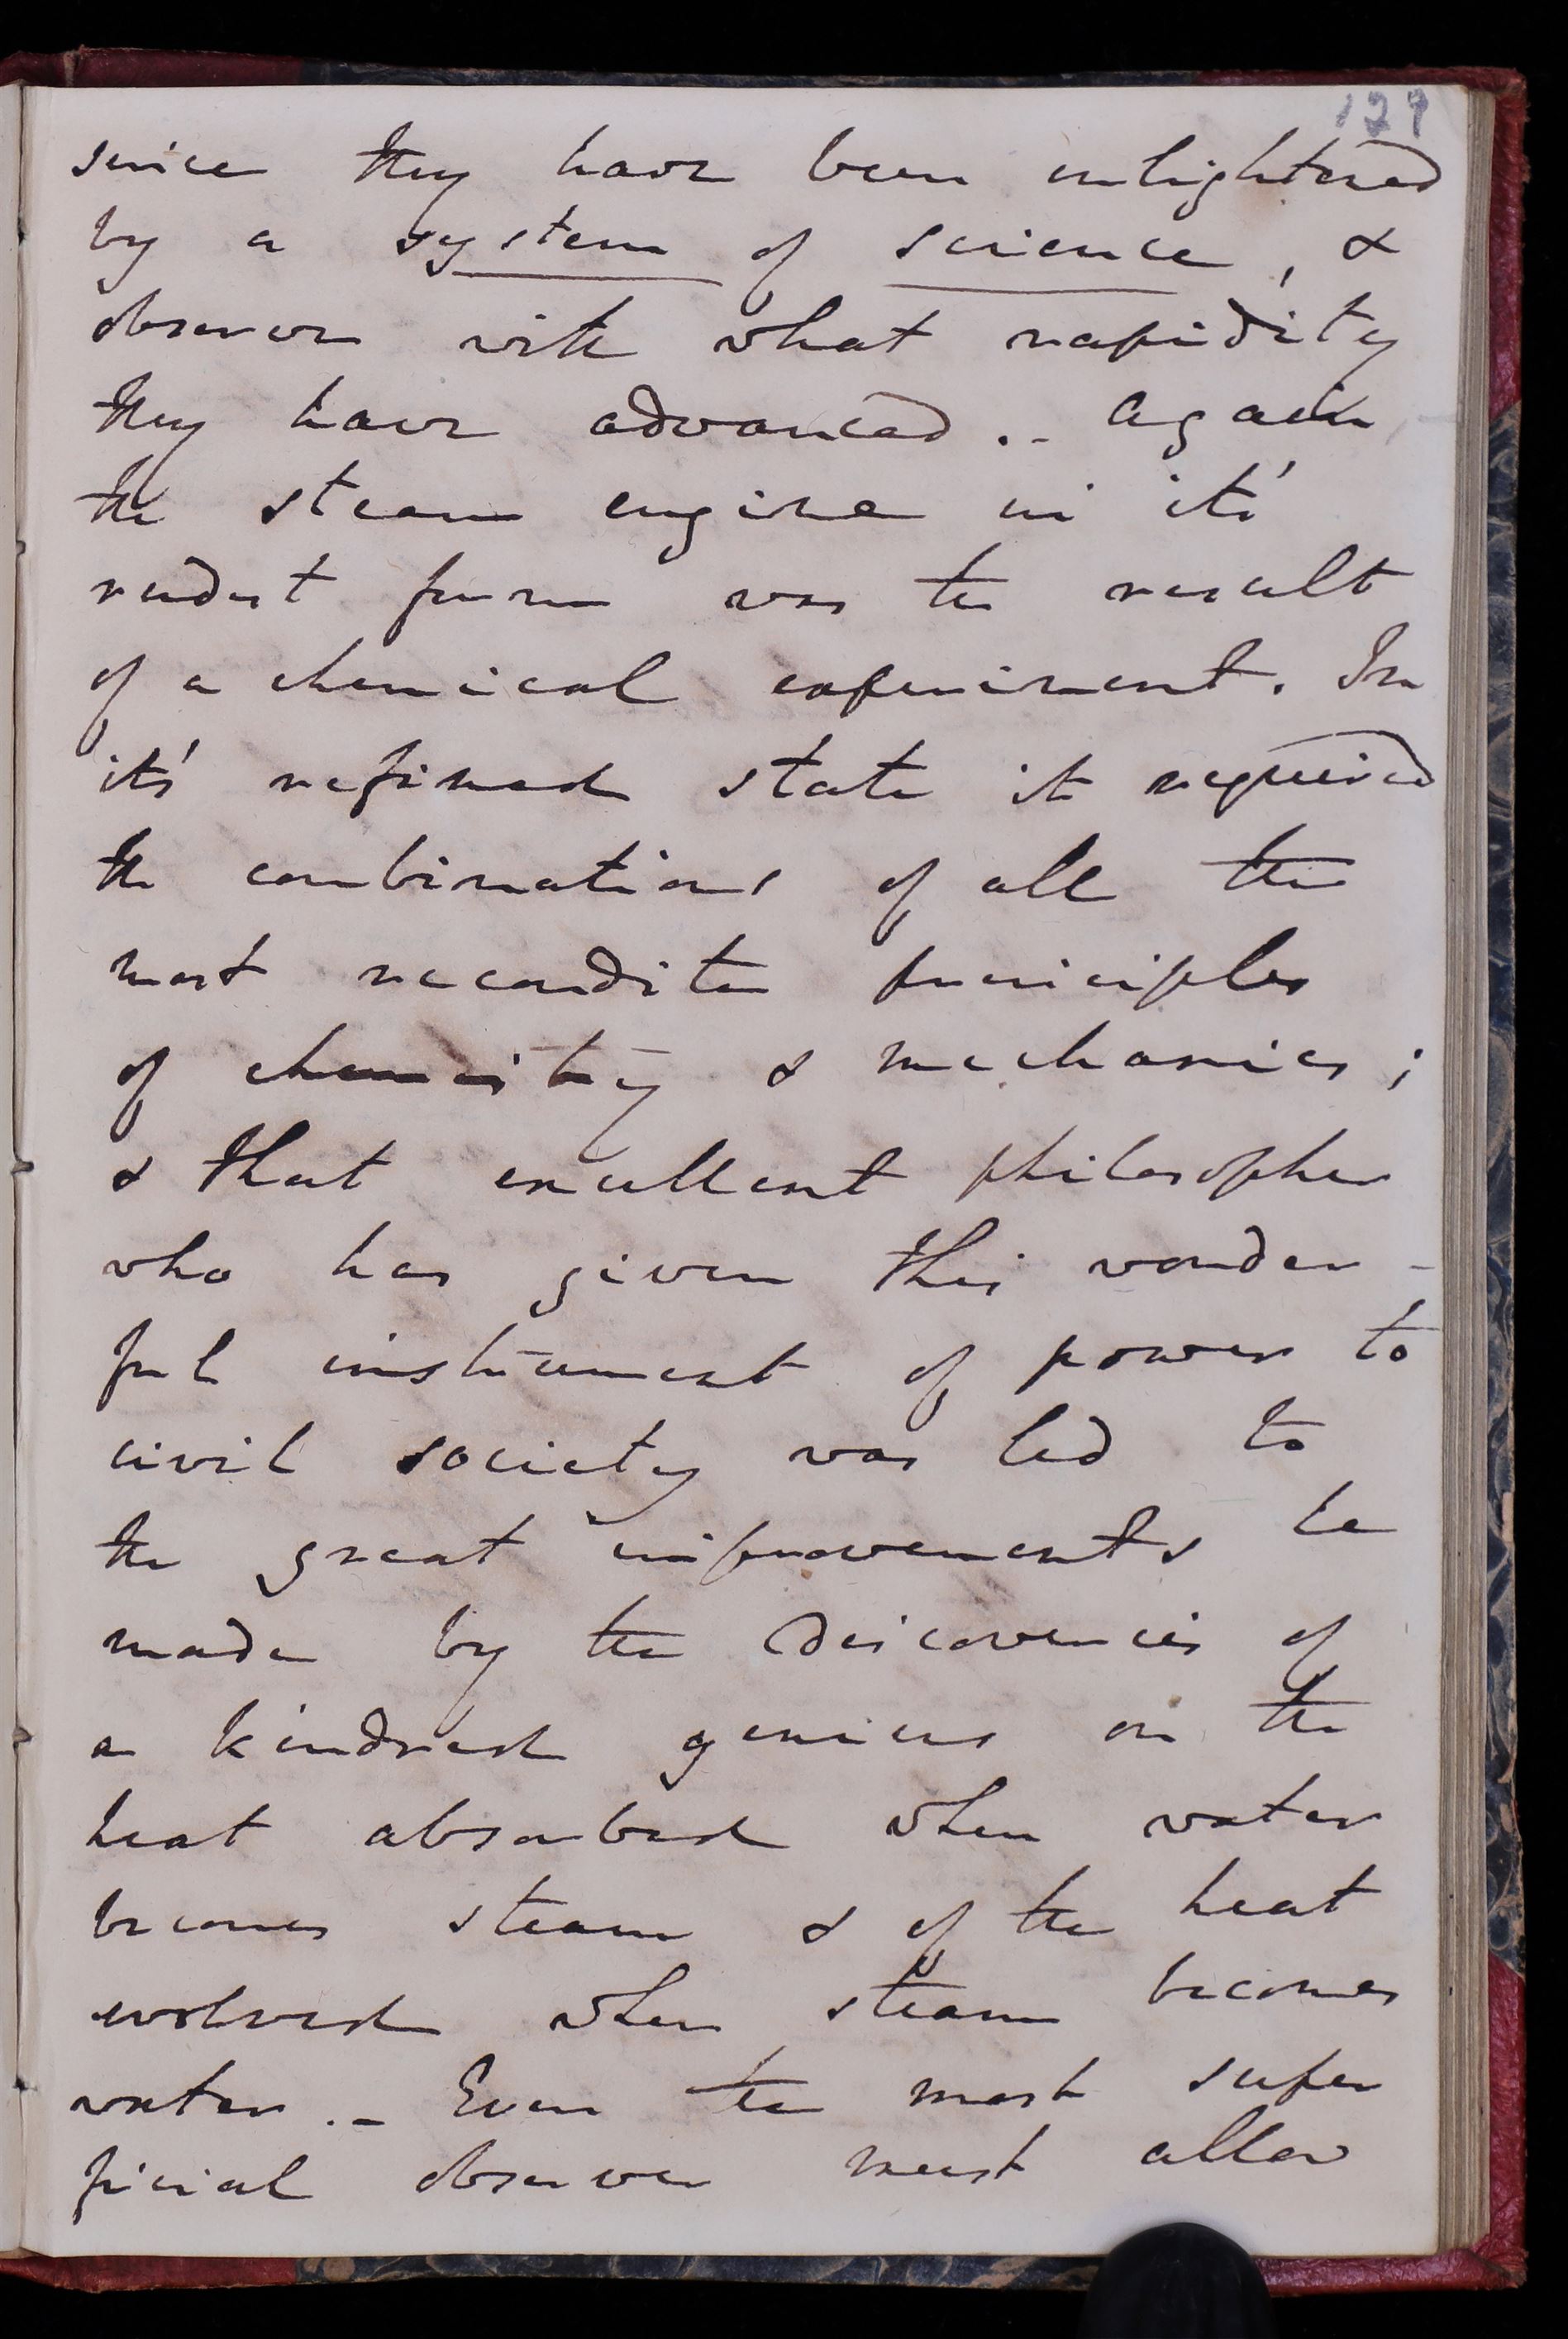 129
since they have been enlightened
by a system of science, &
observe with what rapidity
they have advanced. - Again
the steam engine in it's
rudest form was the result
of a chemical experiment. In
it's refined state it required
the combinations of all the
most recondite principles
of chemistry & mechanics;
& that excellent philosopher
who has given this wonder-
ful instrument of power to
civil society was led to
the great improvements he
made by the discoveries of
a kindred genius on the
heat absorbed when water
becomes steam & of the heat
evolved when steam becomes
water. - Even the most super
ficial observer must allow